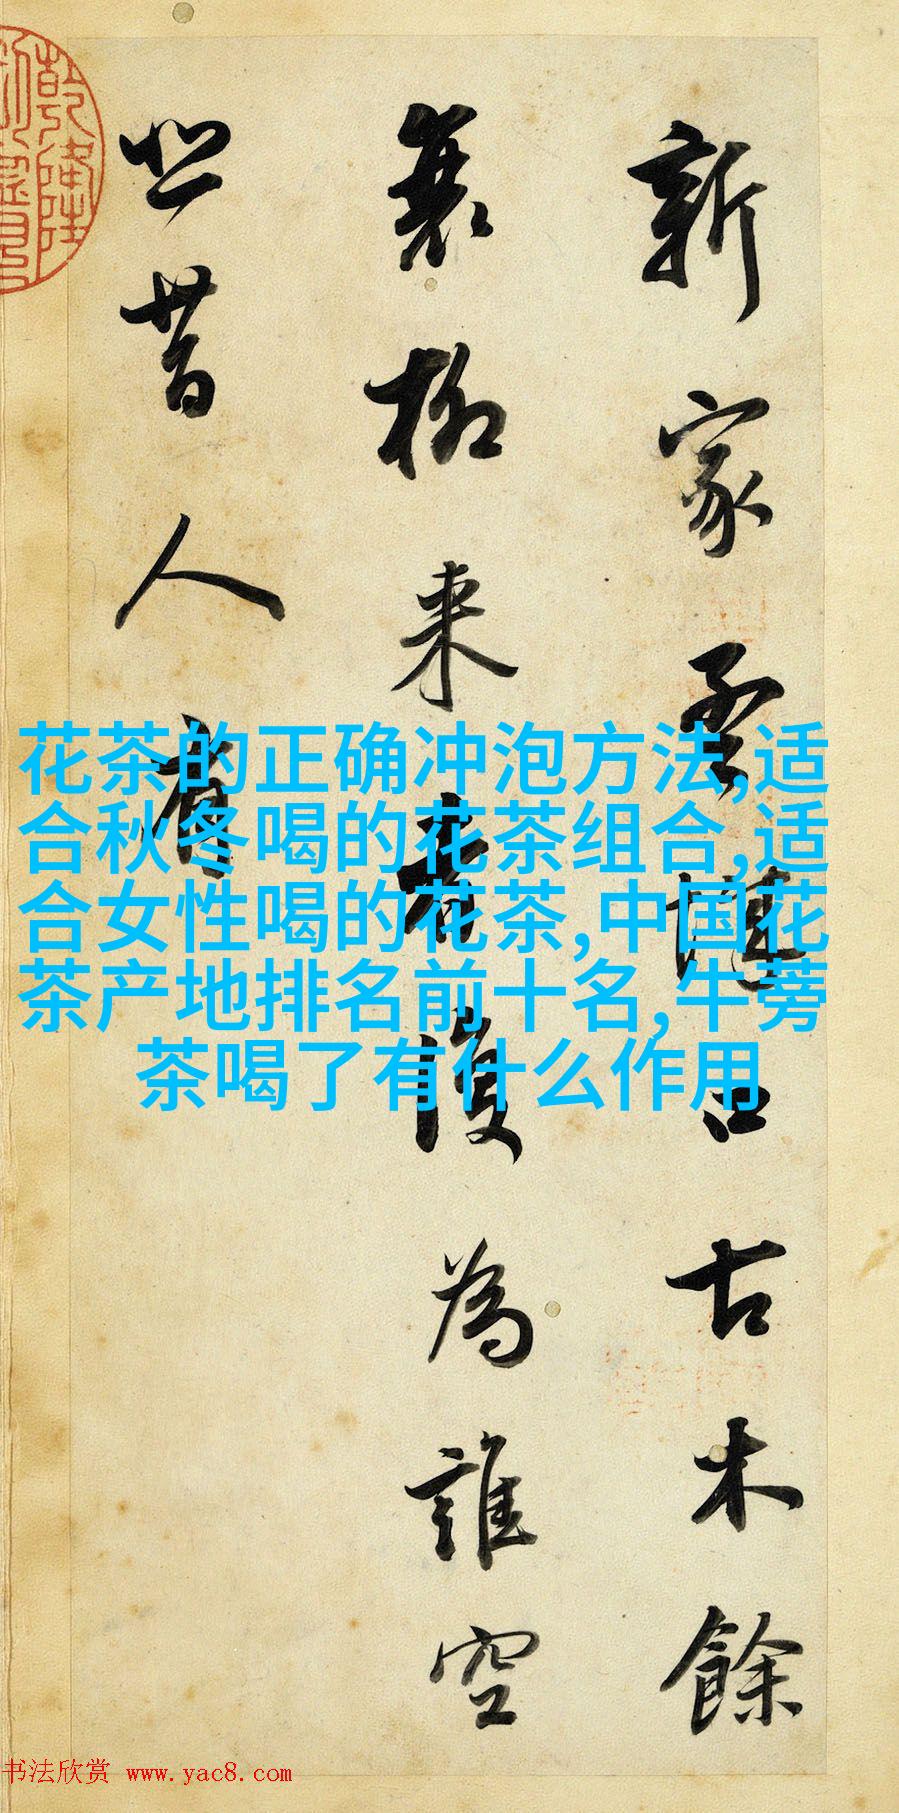 新家孟城口古木餘
衰柳来者復為誰空
悲昔人有
乾隆
花茶的正确冲泡方法,适
合秋冬喝的花茶组合,适
合女性喝的花茶,中国花
茶产地排名前十名,牛蒡
茶喝了有什么作用
书法欣赏 www.yac8.com